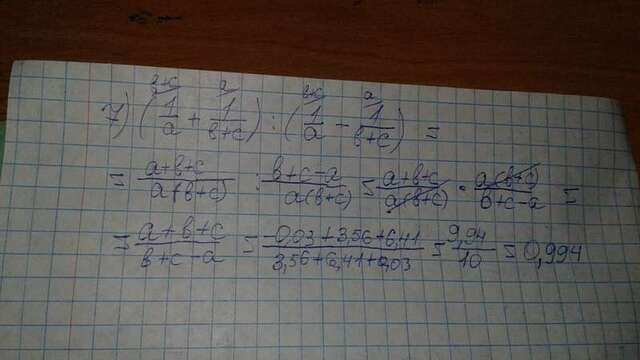 b+c a b+c a
7) (1/a + 1/b+c) : (1/a - 1/b+c) =
= a+b+c/a(b+c) : b+c-a/a(b+c) = a+b+c/a(b+c) · a(b+c)/b+c-a =
= a+b+c/b+c-a = -0,03+3,56+6,41/3,56+6,41+0,03 = 9,94/10 = 0,994